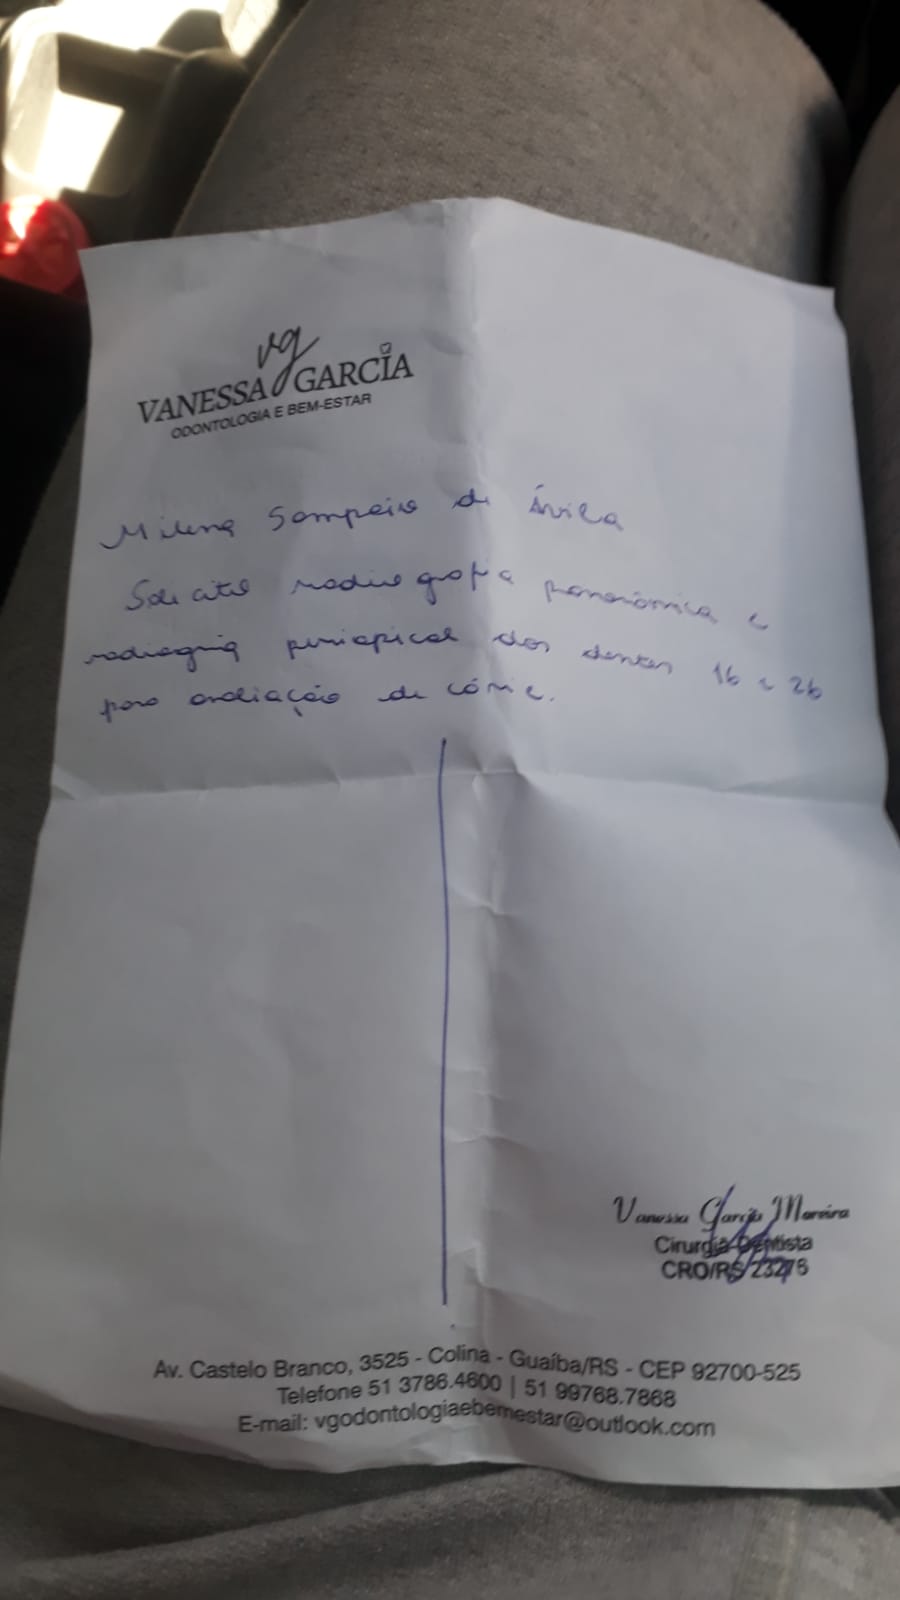 vg
VANESSA GARCIA
ODONTOLOGIA E BEM-ESTAR
Milena Sampaio de Ávila
Solicito radiografia panorâmica e
periapical dos dentes 16 e 26
para avaliação de cárie.
Vanessa Garcia Moreira
Cirurgiã Dentista
CRO/RS 23276
Av. Castelo Branco, 3525 - Colina - Guaíba/RS - CEP 92700-525
Telefone 51 3786.4600 | 51 99768.7868
E-mail: vgodontologiaebemestar@outlook.com